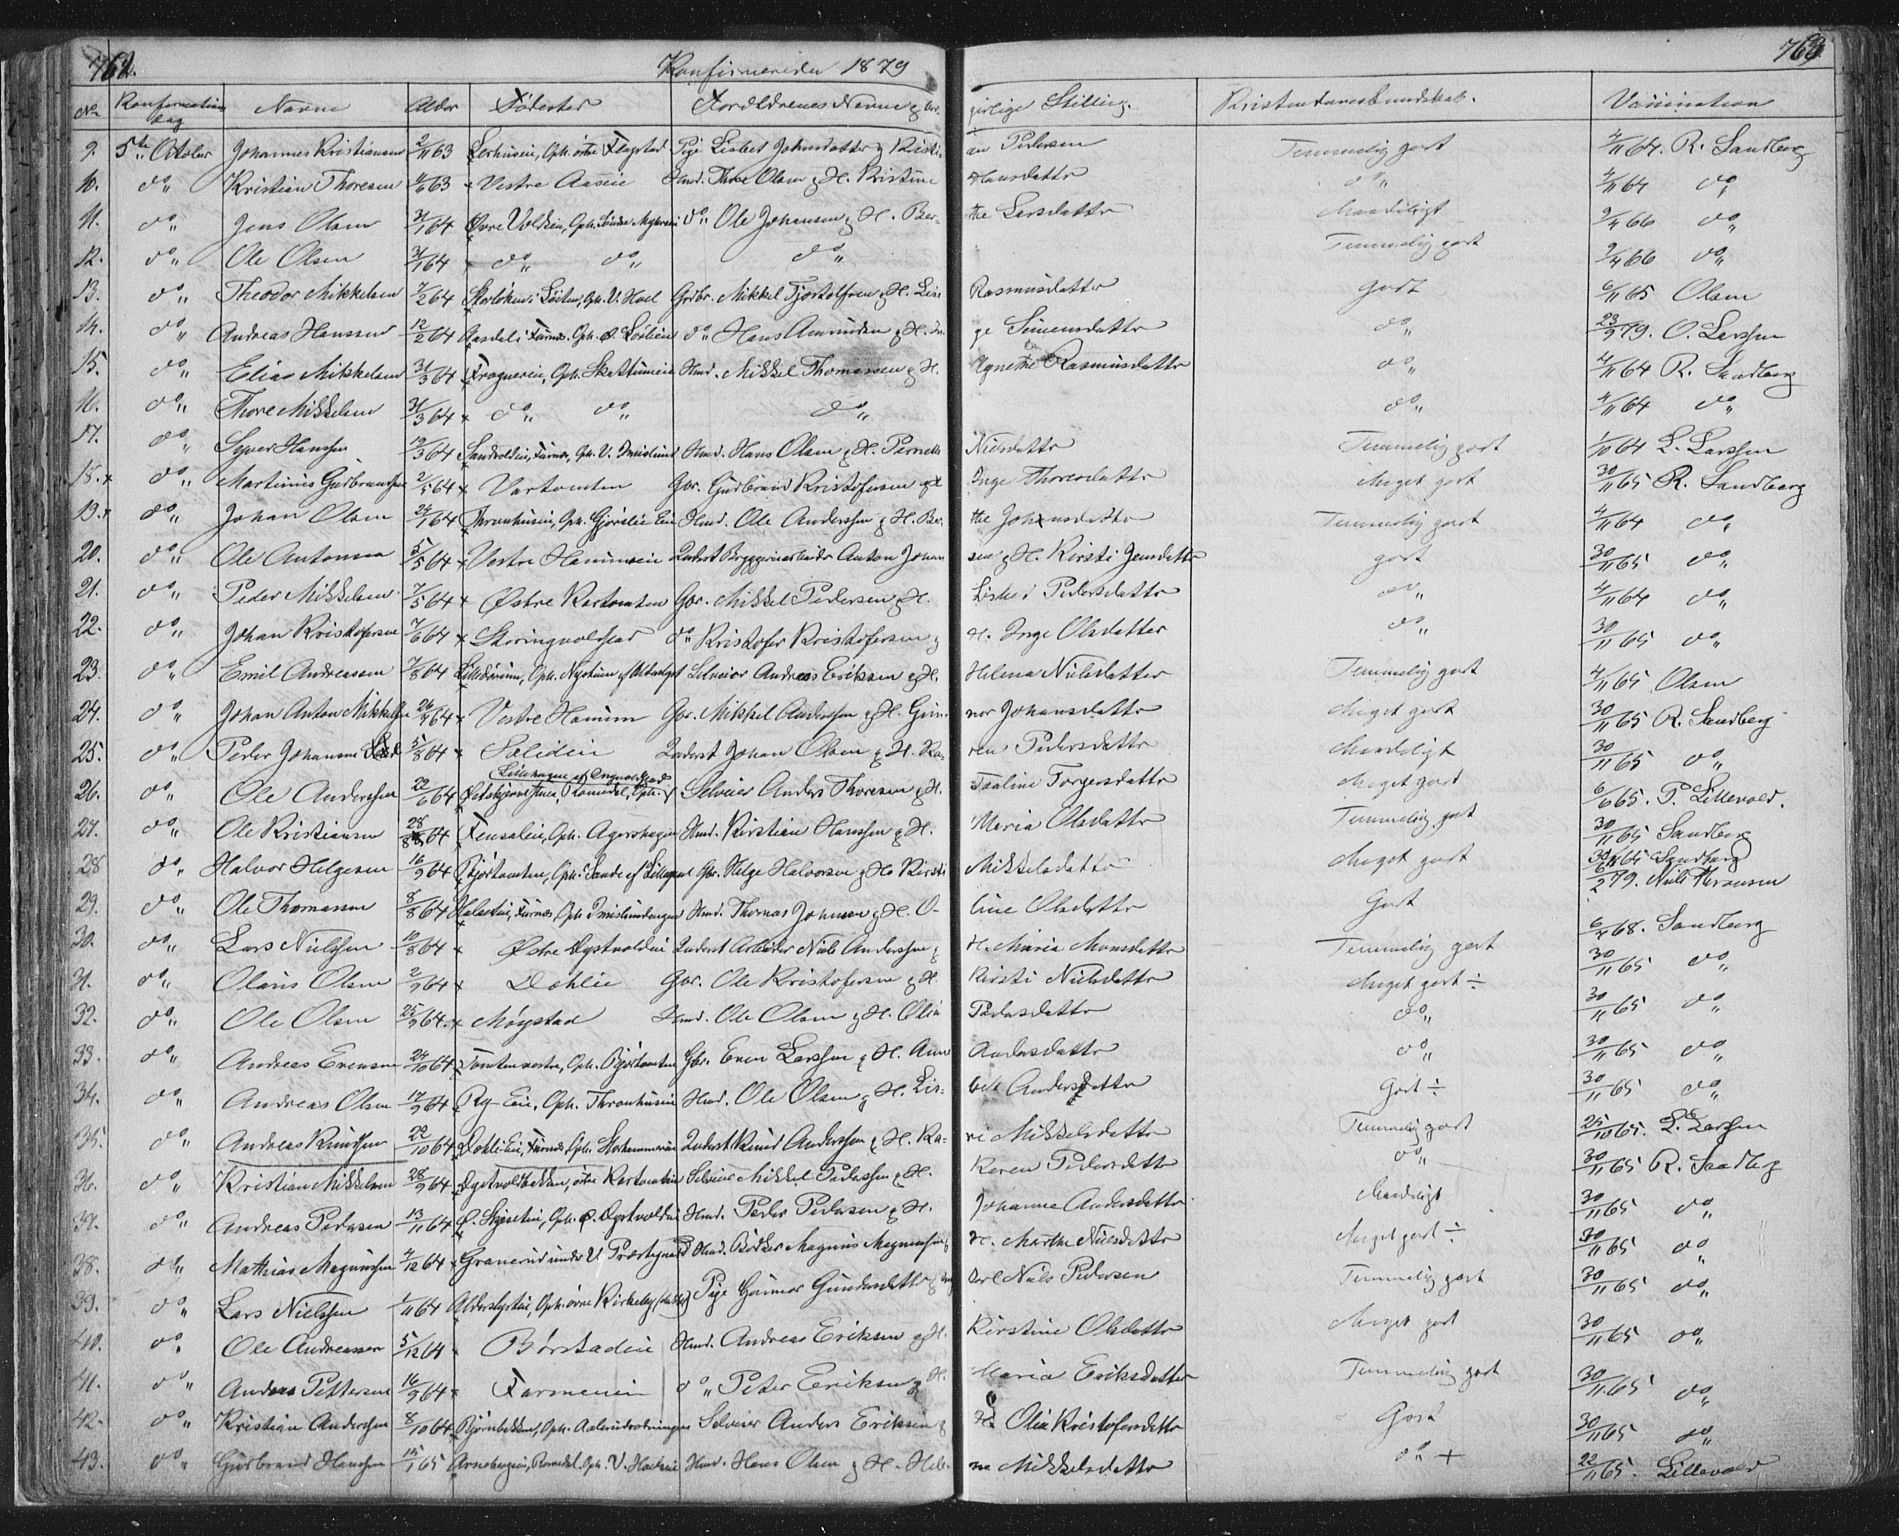 762. Konfirmerede 1879 763
No Konfirmations dag Navne Alder Fødested Forældrenes Navne og borgerlige Stilling. Kristendomskundskab. Vaccination
9. 5te Oktober Johannes Kristiansen 2/11 63 Lerhuseie, Oph. østre Flagstad Pige Lisbet Johnsdatter og Kristian Pedersen Temmelig godt 4/11 64. R. Sandberg
10. do Kristian Thoresen 63 Vestre Aaseie Hmd. Thore Olsen og H. Kristine Hansdatter do 4/11 64 do
11. do Jens Olsen 31/1 64 Øvre Voldeie, Oph. Søndre do Ole Johansen og H. Berthe Larsdatter Maadeligt 9/4 66 do
12. do Ole Olsen 31/1 64 do do do Temmelig godt 9/4 66 do
13. do Theodor Mikkelsen 7/2 64 i Løiten, Oph. V. Hoel Grdbr. Mikkel Tjostolfsen og H. Lise Rasmusdatter godt 6/11 65 Olsen
14. do Andreas Hanssen 12/2 64 Aasdal i Furnes, Oph. do Hans Amundsen og H. Inge Simensdatter do 23/9 79. O. Larssen
15. do Elias Mikkelsen 31/3 64 Frognereie, Oph. Hmd. Mikkel Thomassen og H. Agnethe Rasmusdatter do 4/11 64 R. Sandberg
16. do Thore Mikkelsen 31/3 64 do do do do 4/11 64 do
17. do Syver Hanssen 19/3 64 Sandvoldeie, Furnes, Oph. V. Hmd. Hans Olsen og H. Pernelle Nilsdatter Temmelig godt 1/10 64 L. Larssen
18. do Martinus Gudbrandsen 2/5 64 Vartomten Gbr. Gudbrand Kristofersen og H. Inge Thoresdatter Meget godt 30/11 65 R. Sandberg
19. do Johan Olsen 24/1 64 Thronhuseie, Oph. Eie Hmd. Ole Anderssen og H. Berthe Johnsdatter Temmelig godt 4/11 64 do
20. do Ole Antonsen 5/5 64 Vestre Hommeie Inderst Bryggeriarbeider Anton Johansen og H. Kirsti Jensdatter godt 30/11 65 do
21. do Peder Mikkelsen 7/5 64 Østre Kartomten Gbr. Mikkel Pedersen og H. Lisbet Pedersdatter do 4/11 64 do
22. do Johan Kristofersen 7/6 64 do Kristofer Kristofersen og H. Inge Olsdatter do 30/11 65 do
23. do Emil Andreassen 7/8 64 Oph. Selveier Andreas Eriksen og H. Helena Nilsdatter Temmelig godt 4/11 65 Olsen
24. do Johan Anton Mikkelsen 26/4 64 Vestre Gbr. Mikkel Anderssen og H. Gunnor Johansdatter Meget godt 30/11 65 R. Sandberg
25. do Peder Johansen 64 Inderst Johan Olsen og H. Karen Pedersdatter Maadeligt 30/11 65 do
26. do Ole Anderssen 64 Romedal, Oph. Selveier Anders Thoresen og H. Torgersdatter Meget godt 6/6 65. P. Lillevold.
27. do Ole Kristiansen 28/8 64 Oph. Agershagen Hmd. Kirstian Hanssen og H. Maria Olsdatter Temmelig godt 30/11 65 Sandberg
28 do Halvor Helgesen 16/9 64 Bjørtomten, Oph. Sande Gbr. Helge Halvorsen og H. Kirsti Mikkelsdatter Meget godt 30/11 65 Sandberg
6/2 79. Nils
29. do Ole Thomassen 8/8 64 Furnes, Oph. Hmd. Thomas Johnsen og H. Oline Olsdatter Godt 68. Sandberg
30. do Lars Nielssen 10/8 64 Østre Dystvoldeie Inderst Arbeider Nils Anderssen og H. Maria Monsdatter Temmelig godt 30/11 65 do
31. do Olaus Olsen 2/9 64 Dahlie Gbr. Ole Kristofersen og H. Kirsti Nilsdatter Meget godt ÷ 30/11 65 do
32. do Ole Olsen 25/9 64 Møystad Hmd. Ole Olsen og H. Olia Pedersdatter do 30/11 65 do
33. do Andreas Evensen 24/10 64 Tomten vestre, Oph. Bjørtomten Gbr. Even Larssen og H. Anne Andersdatter do 30/11 65 do
34. do Andreas Olsen 17/9 64 Ry-Eie, Oph. Thronhuseie Hmd. Ole Olsen og H. Lisbet Andersdatter Godt ÷ 30/11 65 do
35. do Andreas Knudssen 22/10 64 Dahli Eie, Furnes, Oph. Storhammereie Inderst Knud Anderssen og H. Kari Mikkelsdatter Temmelig godt 25/10 65. L. Larssen
36. do Kristian Mikkelsen 28/9 64 Dystvoldbakken, østre Kartomten Selveier Mikkel Pederssen og H. Karen Pedersdatter do 30/11 65 R. Sandberg
37. do Andreas Pedersen 13/11 64 Ø. Skjeseteie, Oph. Ø. Dystvoldeie Hmd. Peder Pedersen og H. Johanne Andersdatter Maadeligt 30/11 65 do
38. do Mathias Magnussen 4/12 64 Granerud under V. Præstegaard Hmd. Bødker Magnus Magnussen og H. Marthe Nilsdatter Meget godt ÷ 30/11 65 do
39. do Lars Nielssen 1/11 64 Alderslysteie, Oph. øvre Kirkeby Pige Gunnor Gundersdatter og Nils Pedersen Temmelig godt 30/11 65 do
40. do Ole Andreassen 5/12 64 Børstadeie Hmd. Andreas Eriksen og H. Kirstine Olsdatter Meget godt 30/11 65 do
41. do Anders Pettersen 16/9 64 Farmeneie do Peter Eriksen og H. Maria Eriksdatter Temmelig godt 30/11 65 do
42. do Kristian Anderssen 8/10 64 Bjørnbekken, Oph. Selveier Anders Eriksen og H. Olia Kristofersdatter Godt 30/11 65 do
43. do Gudbrand Hanssen 15/1 65 Arnebergeie, Romedal, Oph. V. Hmd. Hans Olsen og H. Helene Mikkelsdatter do + 22/11 65. Lillevold